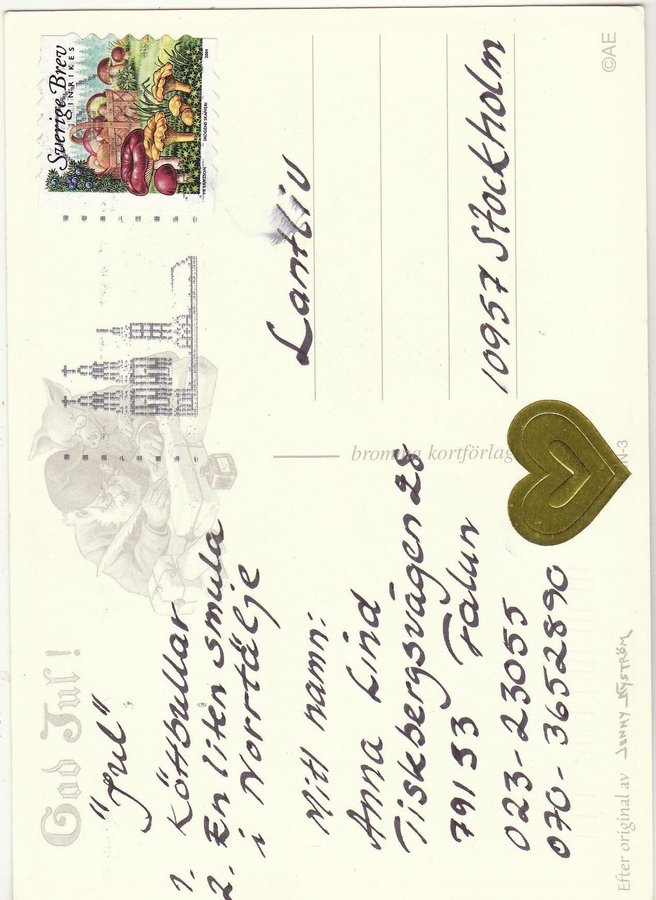 God Jul!
"Jul"
1. Köttbullar
2. En liten smula
i Norrtälje
Mitt namn:
Anna Lind
Tiskbergsvägen 28
79133 Falun
023-23055
070-3652890
Efter original av JENNY NYSTRÖM
bromma kortförlag
N-3
Sverige Brev
INRIKES
2004
Lantliv
10957 Stockholm
©AE